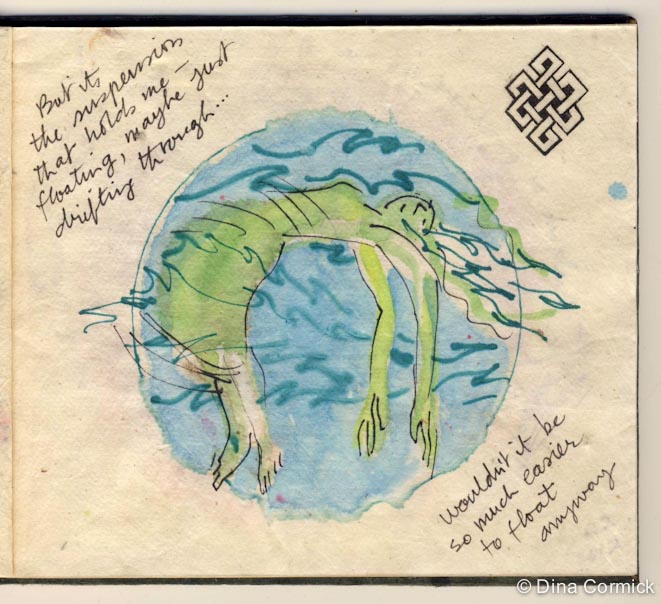 But its
the suspension
that holds me –
floating, maybe just
drifting through...
wouldn't it be
so much easier
to float
anyway
© Dina Cormick